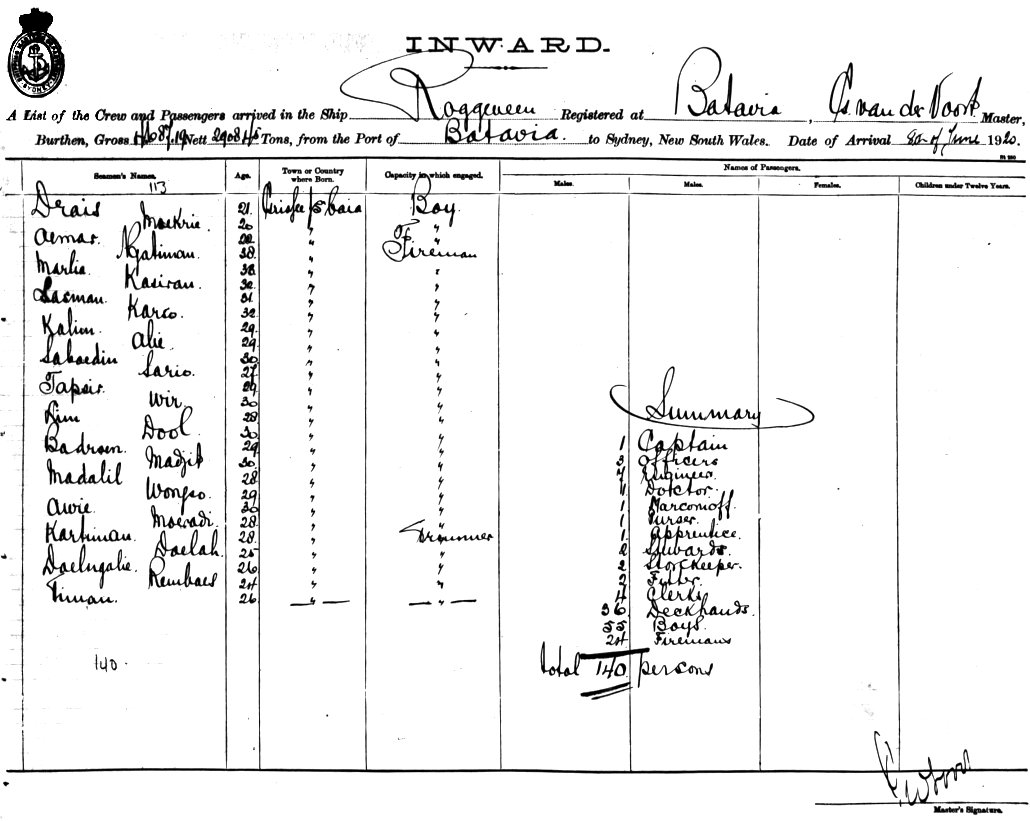 INWARD.
A List of the Crew and Passengers arrived in the Ship Roggeveen Registered at Batavia, Cs. van der Voort Master,
Burthen, Gross Nett 2908 Tons, from the Port of Batavia. to Sydney, New South Wales. Date of Arrival of June 1920.
Names of Passengers.
Seamen's Names. Age. Town or Country where Born. Capacity in which engaged. Males. Males. Females. Children under Twelve Years.
113
Drais 21 Boy
Moekrie 20 " "
Aemar 22 "
Ngatiman 38 " Fireman
Marlia 38 " "
Kasiran 32 " "
Sasman 31 " "
Karso 32 " "
Kalim 29 " "
Alie 29 " "
Saboedin 30 " "
Sario 27 " "
Tapsir 29 " "
Wir 30 " "
Kim 28 " "
Dool 30 " "
Badroen 29 " "
Madjit 30 " "
Madalil 28 " "
Wongso 29 " "
Awie 30 " "
Moeradi 28 " "
Kartiman 28 "
Daelah 25 " "
Daelngalie 26 " "
Rembaes 24 " "
Timan 26 " "
140.
Summary
1 Captain
3 Officers
7 Engineer
1 Doktor
1 Marconioff
1 Purser
1 Apprentice.
2 Stuwards.
2 Storekeeper.
2 Fitter
4 Clerks
36 Deckhands.
55 Boys.
24 Firemans
total 140 persons
Master's Signature.